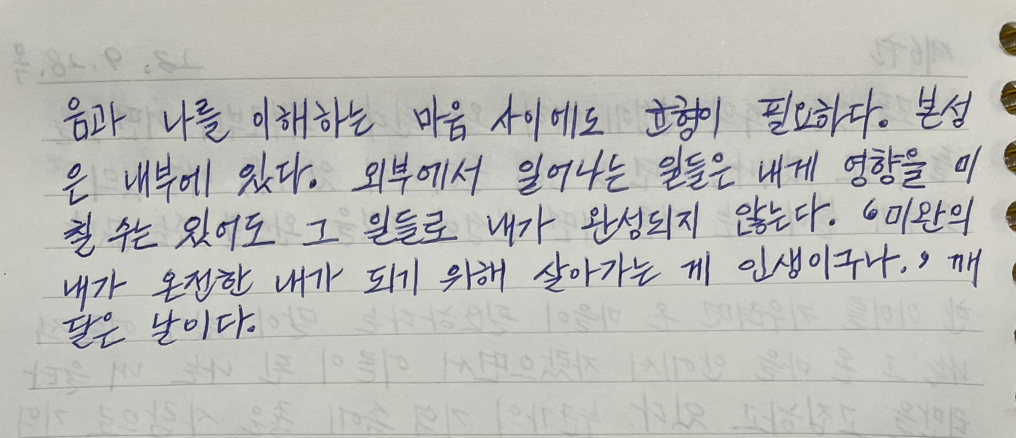 음과 나를 이해하는 마음 사이에도 균형이 필요하다. 본성
은 내부에 있다. 외부에서 일어나는 일들은 내게 영향을 미
칠 수는 있어도 그 일들로 내가 완성되지 않는다. '미완의
내가 온전한 내가 되기 위해 살아가는 게 인생이구나.' 깨
달은 날이다.